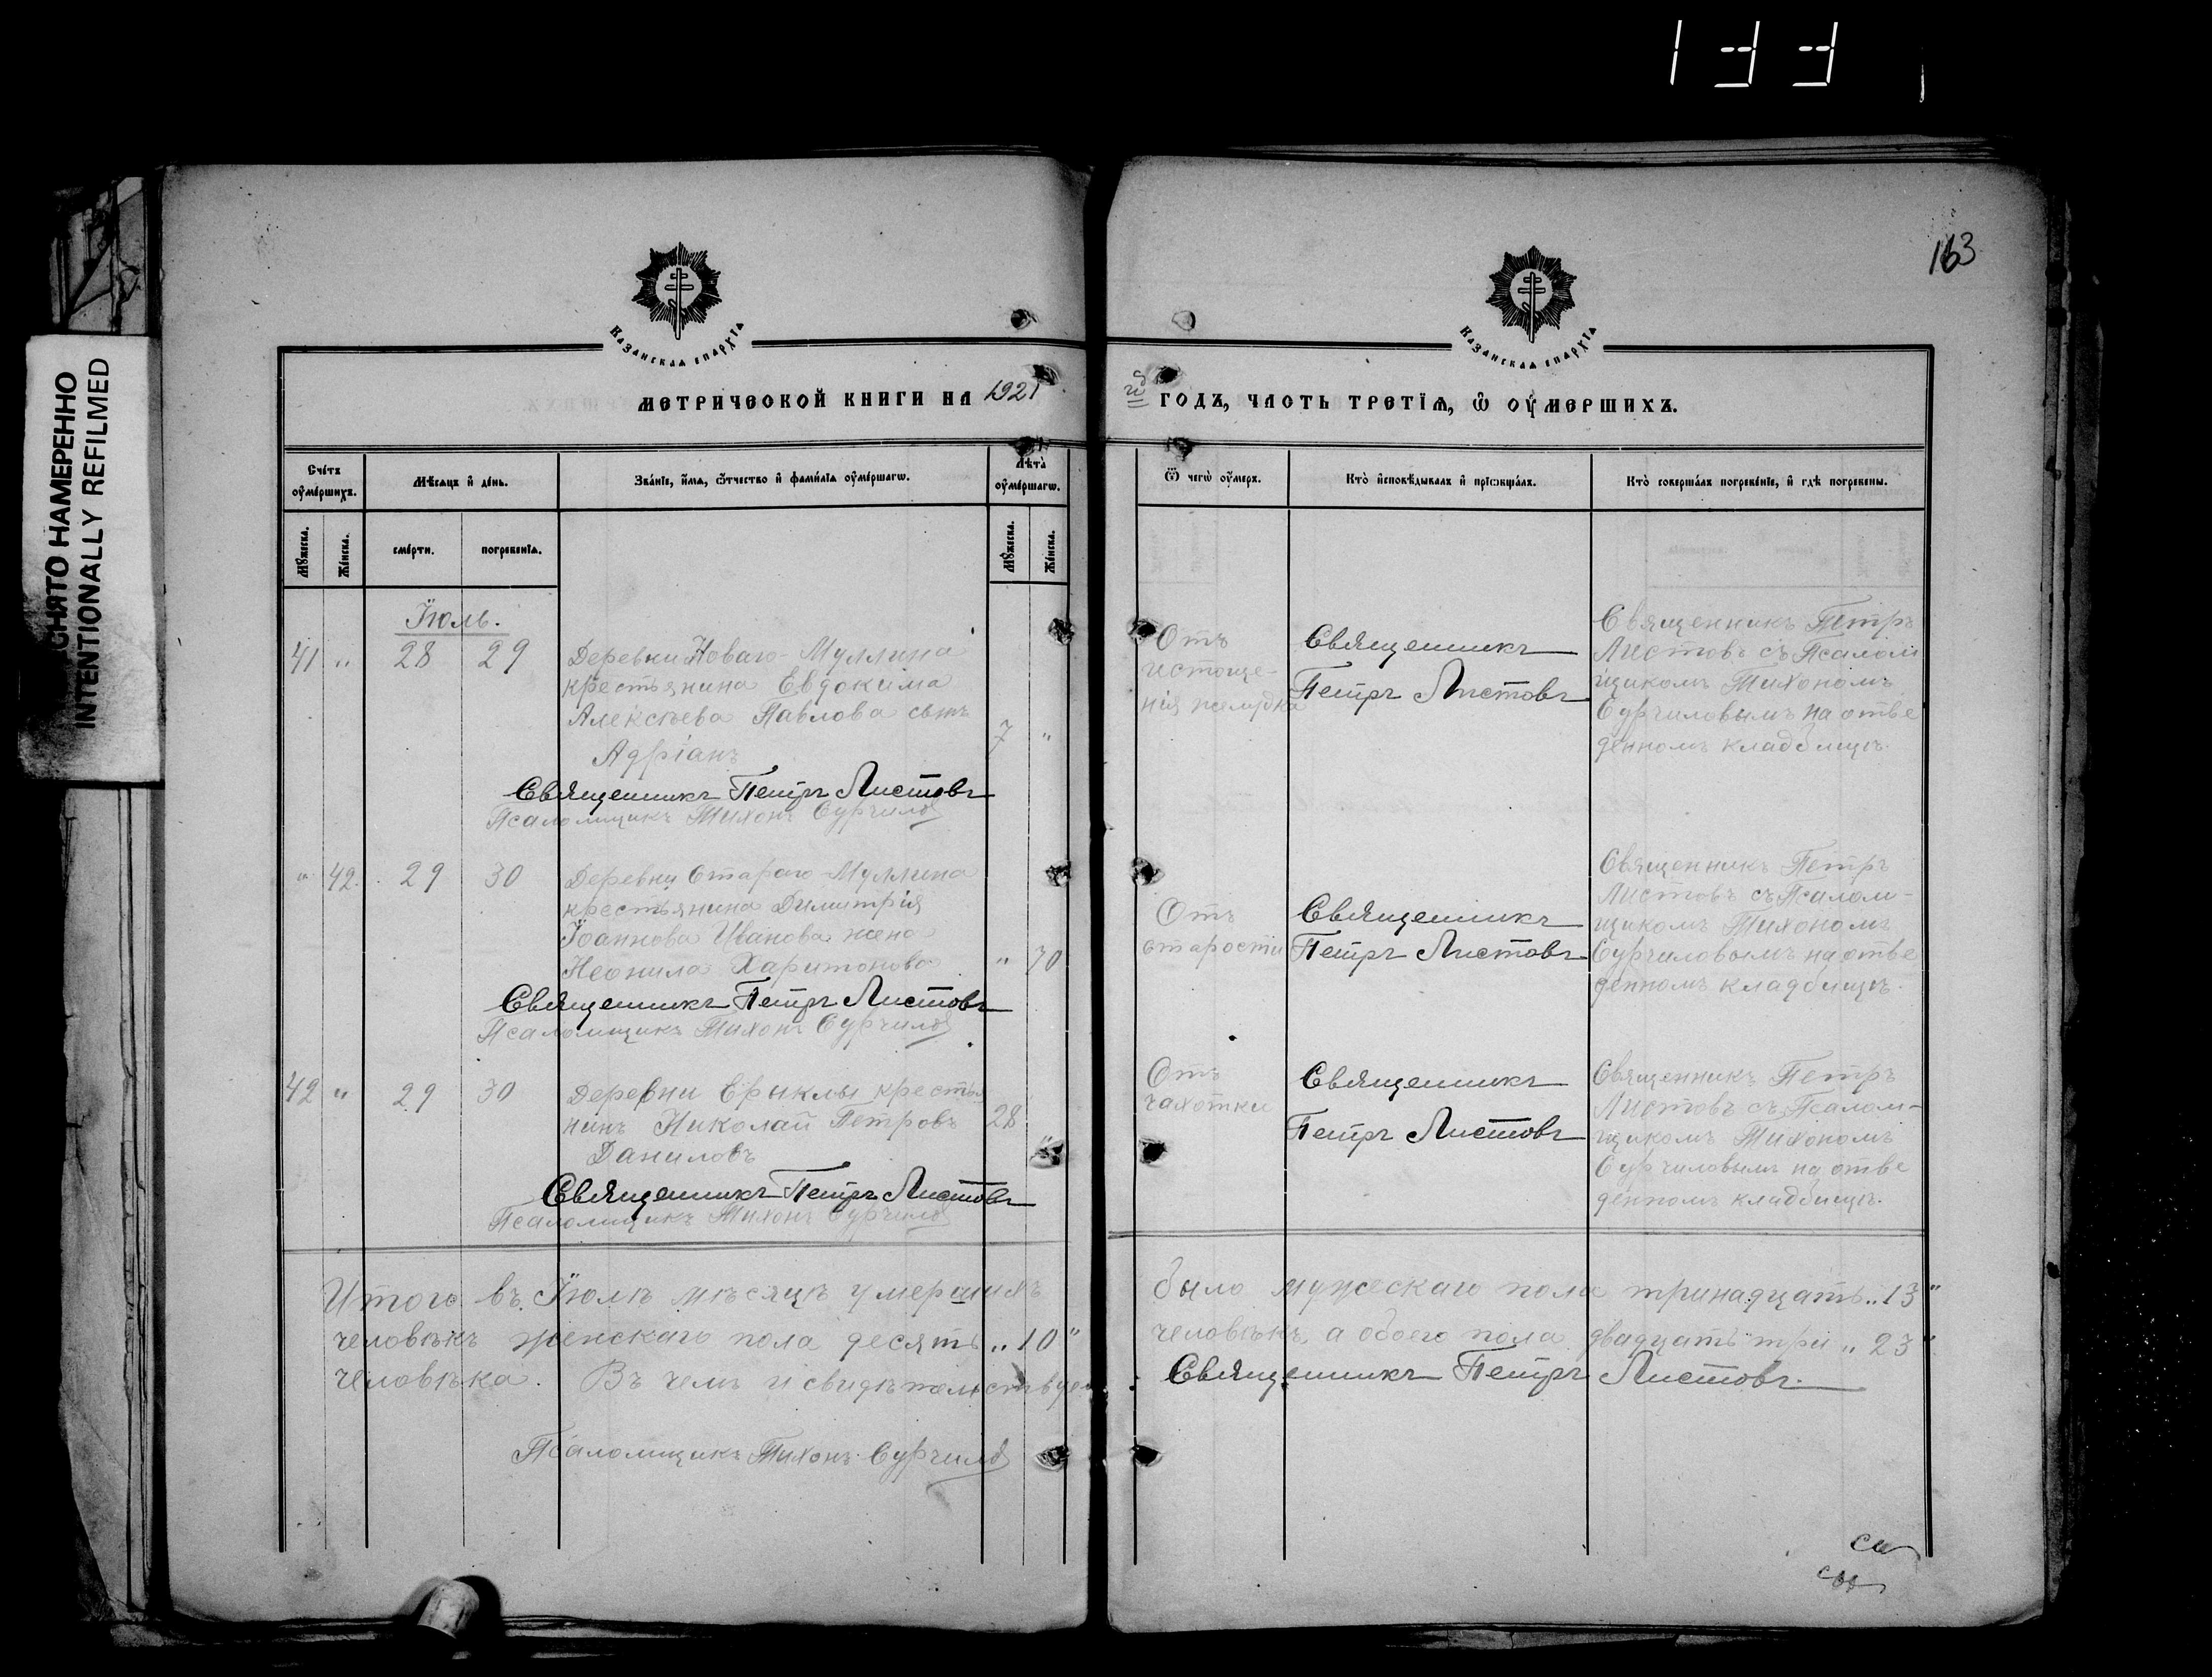 133
163
СНЯТО НАМЕРЕННО
INTENTIONALLY REFILMED
Казанская епархїѧ
Казанская епархїѧ
МЕТРИЧЕСКОЙ КНИГИ НА 1921
ГОДЪ, ЧАСТЬ ТРЕТЇѦ, Ѡ ОУМЕРШИХЪ.
Счетъ оумершихъ.
Мѣсяцъ и день.
Званїе, имѧ, ѿтчество и фамилїѧ оумершагѡ.
Лѣта оумершагѡ.
Мꙋжеска.
Женска.
смерти.
погребенїѧ.
Мꙋжеска.
Женска.
Ѿ чегѡ оумеръ.
Кто исповѣдывалъ и прїѡбщалъ.
Кто совершалъ погребенїе, и гдѣ погребены.
Іюль.
41 " 28 29
Деревни Новаго-Муллина
крестьянина Евдокима
Алексѣева Павлова сынъ
Адріанъ
7 "
Священникъ Петръ Листовъ
Псаломщикъ Тихонъ Сурчилов
Отъ
истоще-
нія желудка
Священникъ
Петръ Листовъ
Священникъ Петръ
Листовъ съ Псалом
щикомъ Тихономъ
Сурчиловымъ на отве
денномъ кладбищѣ.
" 42. 29 30
Деревни Стараго-Муллина
крестьянина Димитрія
Іоаннова Иванова жена
Неонила Харитонова
" 70
Священникъ Петръ Листовъ
Псаломщикъ Тихонъ Сурчилов
Отъ
старости
Священникъ
Петръ Листовъ
Священникъ Петръ
Листовъ съ Псалом-
щикомъ Тихономъ
Сурчиловымъ на отве
денномъ кладбищѣ.
42 " 29 30
Деревни Ерыклы крестья
нинъ Николай Петровъ
Даниловъ
28 "
Священникъ Петръ Листовъ
Псаломщикъ Тихонъ Сурчилов
Отъ
чахотки
Священникъ
Петръ Листовъ
Священникъ Петръ
Листовъ съ Псалом-
щикомъ Тихономъ
Сурчиловымъ на отве
денномъ кладбищѣ.
Итого въ Іюлѣ мѣсяцѣ умершихъ было мужескаго пола тринадцать „13"
человѣкъ женскаго пола десять „10" человѣкъ, а обоего пола двадцать три „23"
человѣка. Въ чемъ и свидѣтельствуем Священникъ Петръ Листовъ.
Псаломщикъ Тихонъ Сурчилов